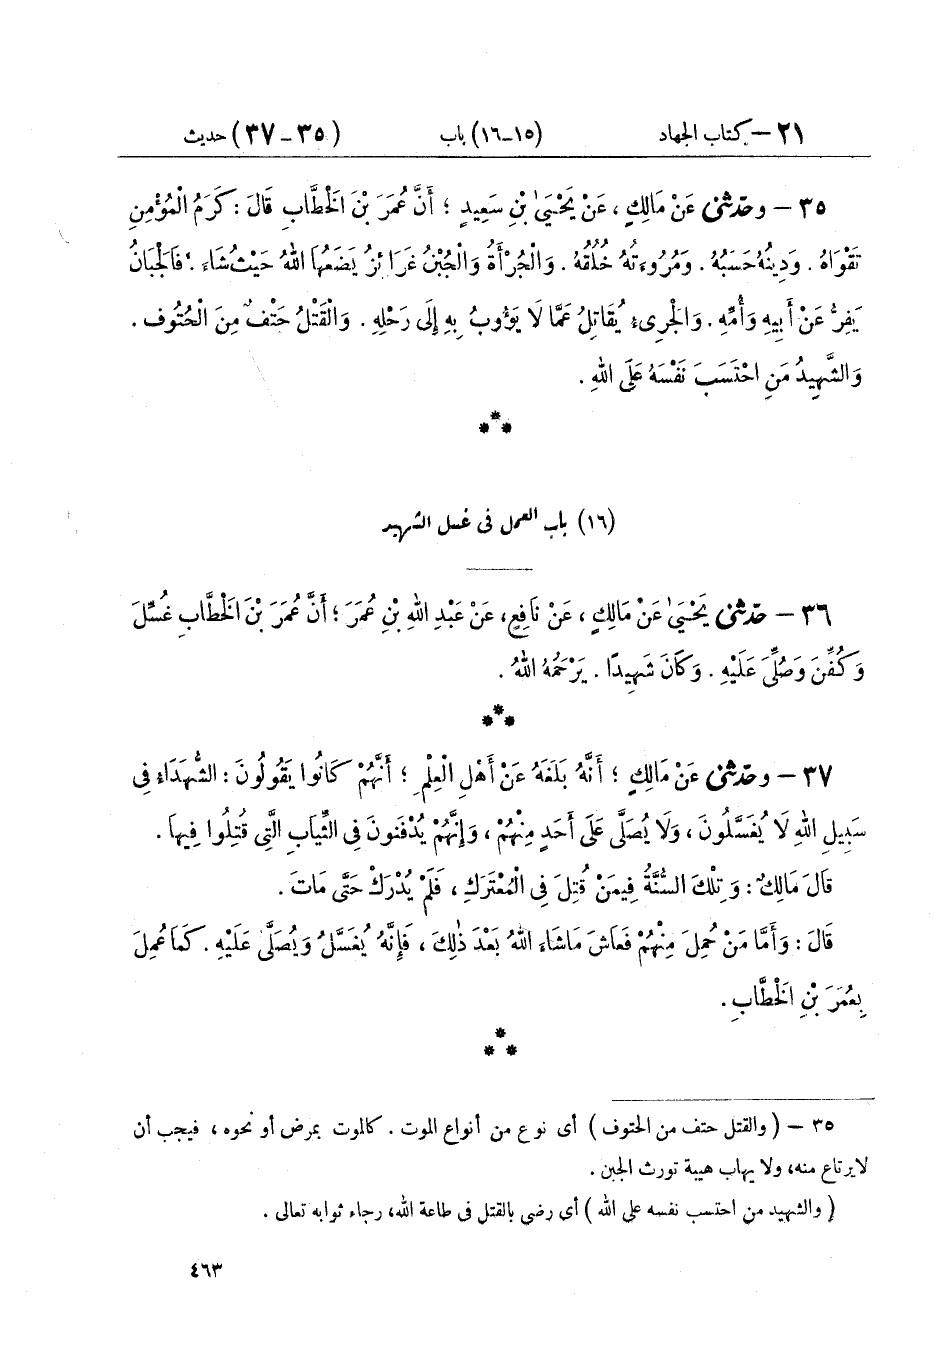 ٢١ – كتاب الجهاد (١٥-١٦) باب (٣٥-٣٧) حديث
٣٥ – وحدّثني عَنْ مَالِكٍ ، عَنْ يَحْيَىٰ بْنِ سَعِيدٍ ؛ أَنَّ عُمَرَ بْنَ الْخَطَّابِ قَالَ : كَرَمُ الْمُؤْمِنِ
تَقْوَاهُ . وَدِينُهُ حَسَبُهُ . وَمُرُوءَتُهُ خُلُقُهُ . وَالْجُرْأَةُ وَالْجُبْنُ غَرَائِزُ يَضَعُهَا اللهُ حَيْثُ شَاءَ . فَالْجَبَانُ
يَفِرُّ عَنْ أَبِيهِ وَأُمِّهِ . وَالْجَرِىءُ يُقَاتِلُ عَمَّا لَا يَؤُوبُ بِهِ إِلَى رَحْلِهِ . وَالْقَتْلُ حَتْفٌ مِنَ الْحُتُوفِ .
وَالشَّهِيدُ مَنِ احْتَسَبَ نَفْسَهُ عَلَى اللهِ .
(١٦) باب العمل فى غسل الشهيد
٣٦ – حدّثني يَحْيَىٰ عَنْ مَالِكٍ ، عَنْ نَافِعٍ ، عَنْ عَبْدِ اللهِ بْنِ عُمَرَ ؛ أَنَّ عُمَرَ بْنَ الْخَطَّابِ غُسِّلَ
وَكُفِّنَ وَصُلِّىَ عَلَيْهِ . وَكَانَ شَهِيدًا . يَرْحَمُهُ اللهُ .
٣٧ – وحدّثني عَنْ مَالِكٍ ؛ أَنَّهُ بَلَغَهُ عَنْ أَهْلِ الْعِلْمِ ؛ أَنَّهُمْ كَانُوا يَقُولُونَ : الشُّهَدَاءُ فِى
سَبِيلِ اللهِ لَا يُغَسَّلُونَ ، وَلَا يُصَلَّى عَلَى أَحَدٍ مِنْهُمْ ، وَإِنَّهُمْ يُدْفَنُونَ فِى الثِّيَابِ الَّتِى قُتِلُوا فِيهَا .
قَالَ مَالِكٌ : وَتِلْكَ السُّنَّةُ فِيمَنْ قُتِلَ فِى الْمُعْتَرَكِ ، فَلَمْ يُدْرَكْ حَتَّى مَاتَ .
قَالَ : وَأَمَّا مَنْ حُمِلَ مِنْهُمْ فَعَاشَ مَا شَاءَ اللهُ بَعْدَ ذٰلِكَ ، فَإِنَّهُ يُغَسَّلُ وَيُصَلَّى عَلَيْهِ . كَمَا عُمِلَ
بِعُمَرَ بْنِ الْخَطَّابِ .
٣٥ – ( والقتل حتف من الحتوف ) أى نوع من أنواع الموت . كالموت بمرض أو نحوه ، فيجب أن
لا يرتاع منه، ولا يهاب هيبة تورث الجبن .
( والشهيد من احتسب نفسه على الله ) أى رضى بالقتل فى طاعة الله، رجاء ثوابه تعالى .
٤٦٣